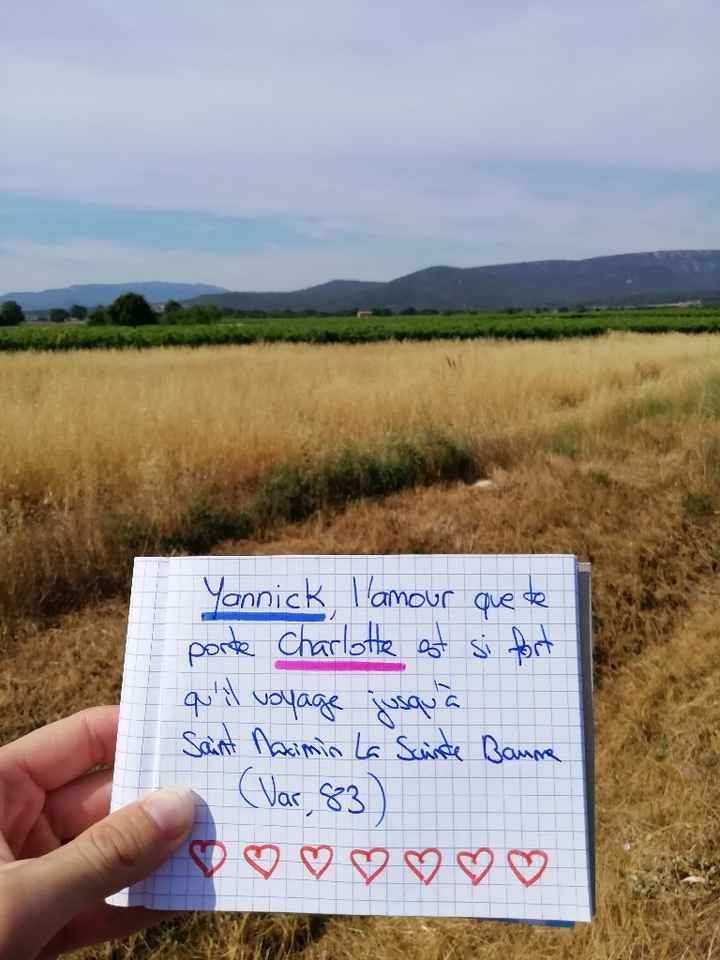 Yannick, l'amour que te
porte Charlotte est si fort
qu'il voyage jusqu'à
Saint Maximin La Sainte Baume
(Var, 83)